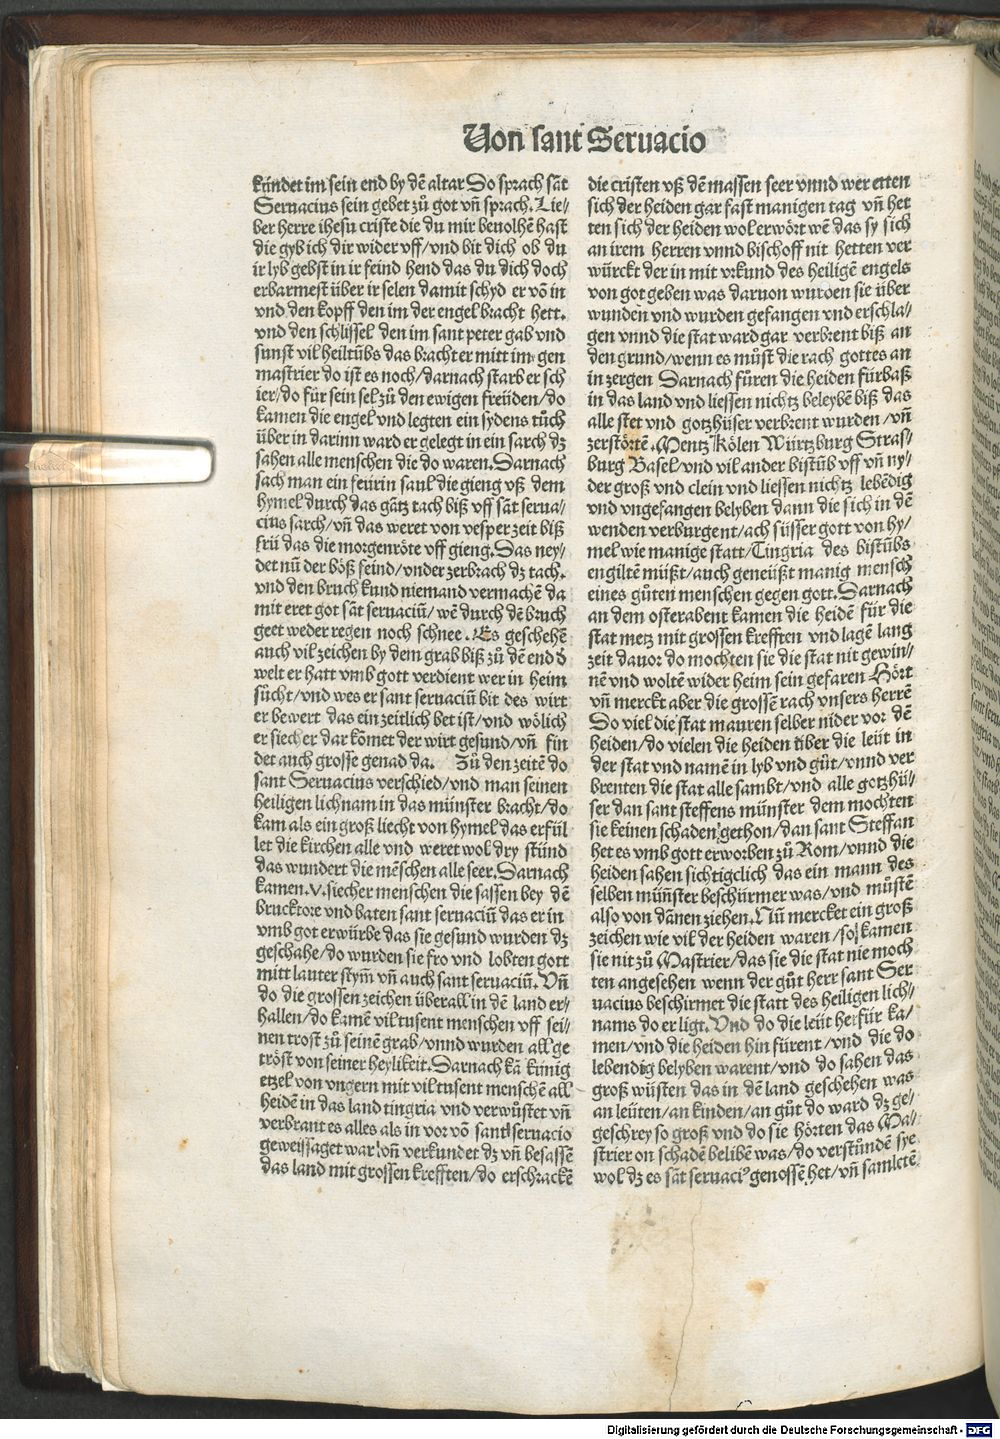 Von sant Seruacio
kündet im sein end by dē altar Do sprach sāt
Seruacius sein gebet zů got vñ sprach. Lie/
ber herre ihesu criste die du mir beuolhē hast
die gyb ich dir wider vff/vnd bit dich ob du
ir lyb gebst in ir feind hend das du dich doch
erbarmest über ir selen damit schyd er vō in
vnd den kopff den im der engel bracht hett.
vnd den schlissel den im sant peter gab vnd
sunst vil heiltūbs das bracht er mitt im gen
mastrier do ist es noch/darnach starb er sch
ier/do für sein sel zů den ewigen freüden/do
kamen die engel vnd legten ein sydens tůch
über in darinn ward er gelegt in ein sarch dz
sahen alle menschen die do waren. Darnach
sach man ein feürin saul die gieng vß dem
hymel durch das gātz tach biß vff sāt serua/
cius sarch/vñ das weret von vesper zeit biß
frü das die morgenröte vff gieng. Das ney/
det nū der böß feind/vnder zerbrach dz tach.
vnd den bruch kund niemand vermachē da
mit eret got sāt seruaciū/wē durch dē bruch
geet weder regen noch schnee. Es geschehē
auch vil zeichen by dem grab biß zů dē end d
welt er hatt vmb gott verdient wer in heim
sücht/vnd wes er sant seruaciū bit des wirt
er bewert das ein zeitlich bet ist/vnd wölich
er siecher dar kōmet der wirt gesund/vñ fin
det auch grosse genad da. Zů den zeitē do
sant Seruacius verschied/vnd man seinen
heiligen lichnam in das münster bracht/do
kam als ein groß liecht von hymel das erfül
let die kirchen alle vnd weret wol dry stūnd
das wundert die mēschen alle seer. Darnach
kamen .v. siecher menschen die sassen bey dē
brucktore vnd baten sant seruaciū das er in
vmb got erwürbe das sie gesund wurden dz
geschahe/do wurden sie fro vnd lobten gott
mitt lauter stym̄ vñ auch sant seruaciū. Vñ
do die grossen zeichen überall in dē land er/
hallen/do kamē vil tusent menschen vff sei/
nen trost zů seinē grab/vnnd wurden all ge
tröst von seiner heylikeit. Darnach kā künig
etzel von vngern mit vil tusent menschē all
heidē in das land tingria vnd verwůstet vñ
verbrant es alles als in vor vō sant seruacio
geweissaget war/vñ verkundet dz vñ besassē
das land mit grossen krefften/do erschrackē
die cristen vß dē massen seer vnnd wer etten
sich der heiden gar fast manigen tag vñ het
ten sich der heiden wol erwört wē das sy sich
an irem herren vnnd bischoff nit hetten ver
würckt der in mit vrkund des heiligē engels
von got geben was daruon wurden sie über
wunden vnd wurden gefangen vnd erschla/
gen vnnd die stat ward gar verbrent biß an
den grund/wenn es můst die rach gottes an
in zergen Darnach füren die heiden fürbaß
in das land vnd liessen nichtz beleybē biß das
alle stet vnd gotzhüser verbrent wurden/vñ
zerstörtē. Mentz Kölen Würtzburg Stras/
burg Basel/vnd vil ander bistūb vff vñ ny/
der groß vnd clein vnd liessen nichtz lebēdig
vnd vngefangen belyben dann die sich in dē
wenden verburgent/ach süsser gott von hy/
mel wie manige statt/Tingria des bistūbs
engiltē müßt/auch geneüßt manig mensch
eines gůten menschen gegen gott. Darnach
an dem osterabent kamen die heidē für die
stat metz mit grossen krefften vnd lagē lang
zeit dauor do mochten sie die stat nit gewin/
nē vnd woltē wider heim sein gefaren Hört
vñ merckt aber die grossē rach vnsers herrē
Do viel die stat mauren selber nider vor dē
heiden/do vielen die heiden über die leüt in
der stat vnd namē in lyb vnd gůt/vnnd ver
brenten die stat alle sambt/vnd alle gotzhü/
ser dan sant steffens münster dem mochten
sie keinen schaden gethon/dan sant Steffan
het es vmb gott erworben zů Rom/vnnd die
heiden sahen sichtigclich das ein mann des
selben müñster beschürmer was/vnd můstē
also von dānen ziehen. Nū mercket ein groß
zeichen wie vil der heiden waren/so kamen
sie nit zů Mastrier/das sie die stat nie moch
ten angesehen wenn der gůt herr sant Ser
uacius beschirmet die statt des heiligen lich/
nams do er ligt. Vnd do die leüt herfür ka/
men/vnd die heiden hin fürent/vnd die do
lebendig belyben warent/vnd do sahen das
groß wüsten das in dē land geschehen was
an leüten/an kinden/an gůt do ward dz ge/
geschrey so groß vnd do sie hörten das Ma/
strier on schadē belibē was/do verstůndē sye
wol dz es sāt seruaciꝰ genossē het/vñ samletē
Digitalisierung gefördert durch die Deutsche Forschungsgemeinschaft - DFG